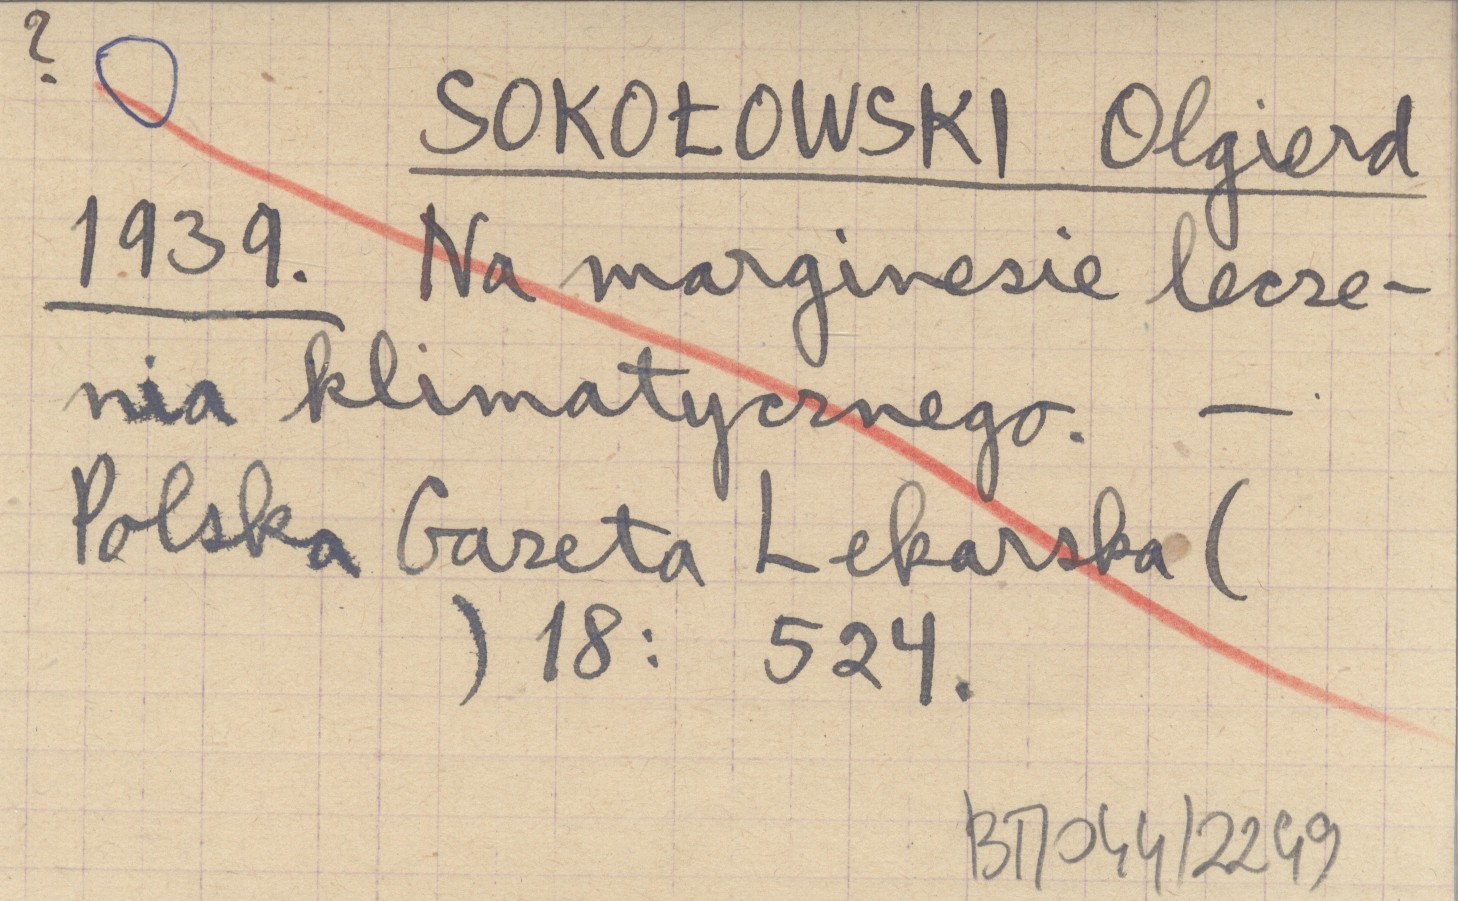 ?
SOKOŁOWSKI Olgierd
1939. Na marginesie lecze-
nia klimatycznego. —
Polska Gazeta Lekarska (
) 18: 524.